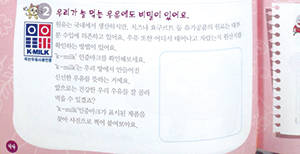 2
우리가 늘 먹는 우유에도 비밀이 있어요.
원유는 국내에서 생산하지만, 치즈나 요구르트 등 유가공품의 원료는 대부
분 수입에 의존하고 있어요. 우유 또한 어디서 태어나고 자랐는지 원산지를
확인하는 방법이 있어요.
'k-milk' 인증마크를 확인해보세요.
'k-milk'는 우리 땅에서 만들어진
신선한 우유를 뜻하는 거예요.
앞으로는 건강한 우리 우유를 잘 골라
먹을 수 있겠죠?
'k-milk' 인증마크가 표시된 제품을
찾아 사진으로 찍어 붙여보아요.
K·MILK
국산우유사용인증
44